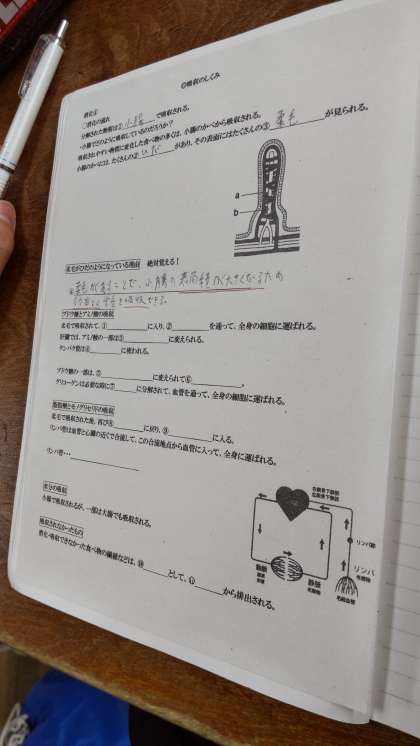 ◎吸収のしくみ
消化④
○消化の流れ
分解された物質は①小腸で吸収される。
・小腸でどのように吸収しているのだろうか?
吸収されやすい物質に変化した食べ物の多くは、小腸のかべから吸収される。
小腸のかべには、たくさんの②ひだがあり、その表面にはたくさんの③柔毛が見られる。
a
b
柔毛がひだのようになっている理由 絶対覚える!
柔毛があることで、小腸の表面積が大きくなるため
効率よく養分を吸収できる。
ブドウ糖とアミノ酸の吸収
柔毛で吸収されて、①に入り、②を通って、全身の細胞に運ばれる。
肝臓では、アミノ酸の一部は③に変えられる。
タンパク質は④に使われる。
ブドウ糖の一部は、⑤に変えられて⑥。
グリコーゲンは必要な時に⑦に分解されて、血管を通って、全身の細胞に運ばれる。
脂肪酸とモノグリセリドの吸収
柔毛で吸収された後、再び⑧に戻り、⑨に入る。
リンパ管は血管と心臓の近くで合流して、この合流地点から血管に入って、全身に運ばれる。
リンパ管・・・
水分の吸収
小腸で吸収されるが、一部は大腸でも吸収される。
吸収されなかったもの
消化・吸収できなかった食べ物の繊維などは、⑩として、⑪から排出される。
右鎖骨下静脈
左鎖骨下静脈
リンパ節
動脈
静脈
リンパ
毛細血管